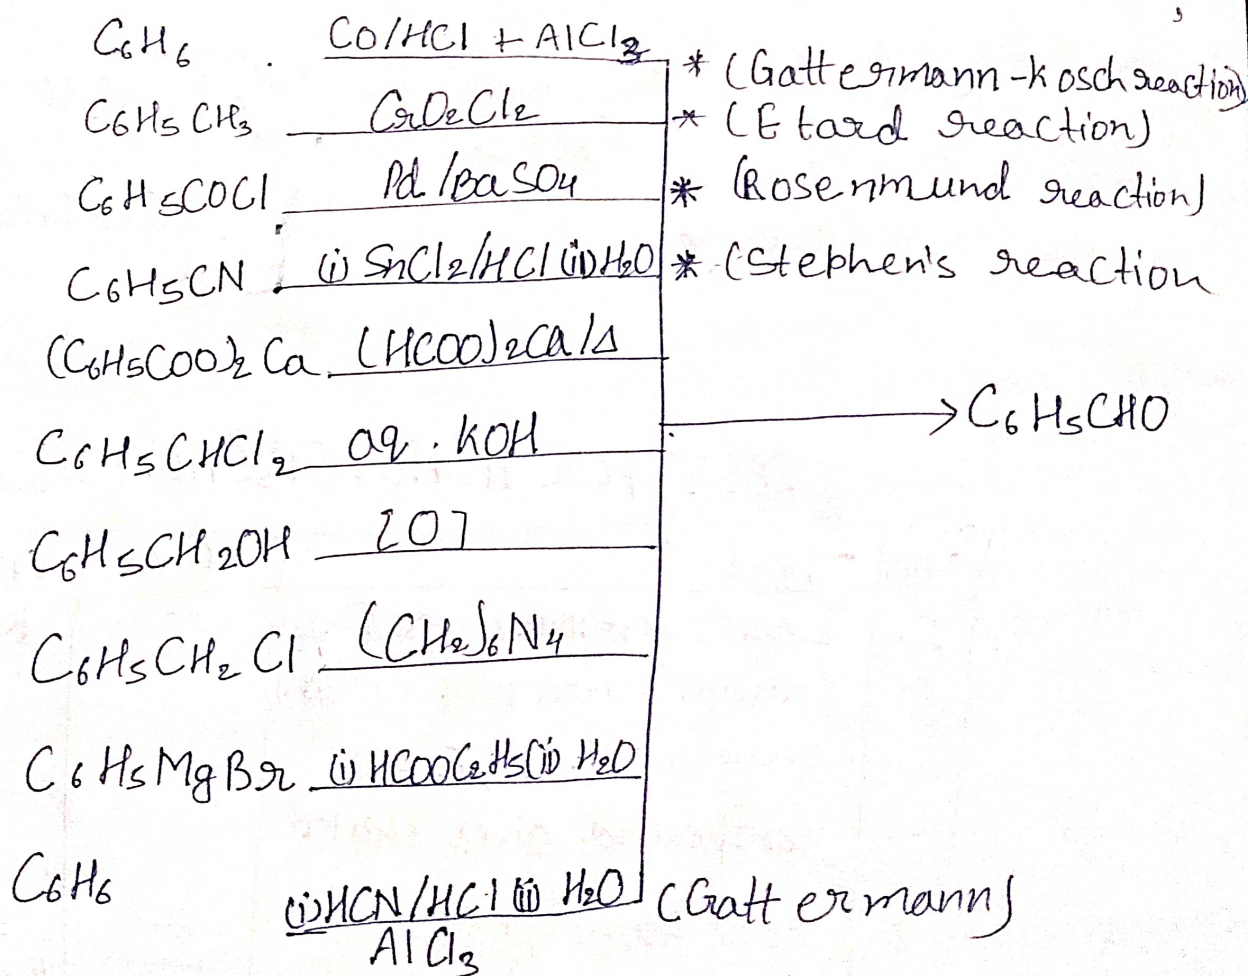 C6H6 CO/HCl + AlCl3 * (Gattermann-Kosch reaction)
C6H5CH3 CrO2Cl2 * (Etard reaction)
C6H5COCl Pd/BaSO4 * (Rosenmund reaction)
C6H5CN (i) SnCl2/HCl (ii) H2O * (Stephen's reaction
(C6H5COO)2 Ca (HCOO)2Ca/Δ
→ C6H5CHO
C6H5CHCl2 aq. KOH
C6H5CH2OH [O]
C6H5CH2Cl (CH2)6N4
C6H5MgBr (i) HCOOC2H5 (ii) H2O
C6H6 (i) HCN/HCl (ii) H2O (Gattermann)
AlCl3